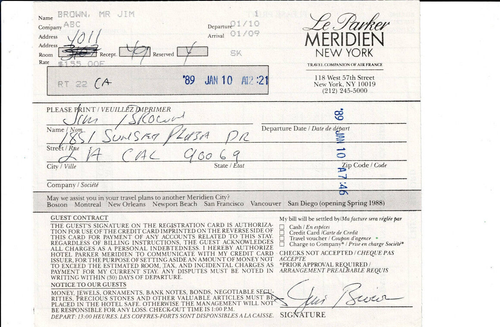 Name BROWN, MR JIM 1
Company ABC Departure 01/10
Address Arrival 01/09
Address 4011
Room Recept Reserved SK
Rate $155.00E
RT 22 CA '89 JAN 10 A12:21
Le Parker
MERIDIEN
NEW YORK
TRAVEL COMPANION OF AIR FRANCE
118 West 57th Street
New York, NY 10019
(212) 245-5000
PLEASE PRINT / VEUILLEZ IMPRIMER
Jim Brown
Name / Nom Departure Date / Date de départ
1851 SUNSET PLAZA DR
Street / Rue
LA CAL 90069
City / Ville State / État Zip Code / Code
'89 JAN 10 A7:46
Company / Société
May we assist you in your travel plans to another Meridien City?
Boston Montreal New Orleans Newport Beach San Francisco Vancouver San Diego (opening Spring 1988)
GUEST CONTRACT
THE GUEST'S SIGNATURE ON THE REGISTRATION CARD IS AUTHORIZA-
TION FOR USE OF THE CREDIT CARD IMPRINTED ON THE REVERSE SIDE OF
THIS CARD FOR PAYMENT OF ANY ACCOUNTS RELATED TO THIS STAY
REGARDLESS OF BILLING INSTRUCTIONS. THE GUEST ACKNOWLEDGES
ALL CHARGES AS A PERSONAL INDEBTEDNESS. I HEREBY AUTHORIZE
HOTEL PARKER MERIDIEN TO COMMUNICATE WITH MY CREDIT CARD
ISSUER, FOR THE PURPOSE OF SETTING ASIDE AN AMOUNT OF MONEY NOT
TO EXCEED THE ESTIMATED ROOM, TAX, AND INCIDENTAL CHARGES AS
PAYMENT FOR MY CURRENT STAY. ANY DISPUTES MUST BE NOTED IN
WRITING WITHIN (30) DAYS OF DEPARTURE.
NOTICE TO OUR GUESTS
MONEY, JEWELS, ORNAMENTS, BANK NOTES, BONDS, NEGOTIABLE SECU-
RITIES, PRECIOUS STONES AND OTHER VALUABLE ARTICLES MUST BE
PLACED IN THE HOTEL SAFE. OTHERWISE THE MANAGEMENT WILL NOT
BE RESPONSIBLE FOR ANY LOSS. CHECK-OUT TIME IS 1:00 PM.
DÉPART: 13:00 HEURES. LES COFFRES-FORTS SONT DISPONIBLES A LA CAISSE.
My bill will be settled by/Ma facture sera réglée par
Cash / En espèces
Credit Card / Carte de Crédit
Travel voucher / Coupon d'agence *
Charge to Company* / Prise en charge Société*
CHECKS NOT ACCEPTED / CHEQUE PAS
ACCEPTE
*PRIOR APPROVAL REQUIRED /
ARRANGEMENT PREALABLE REQUIS
X Jim Brown
SIGNATURE